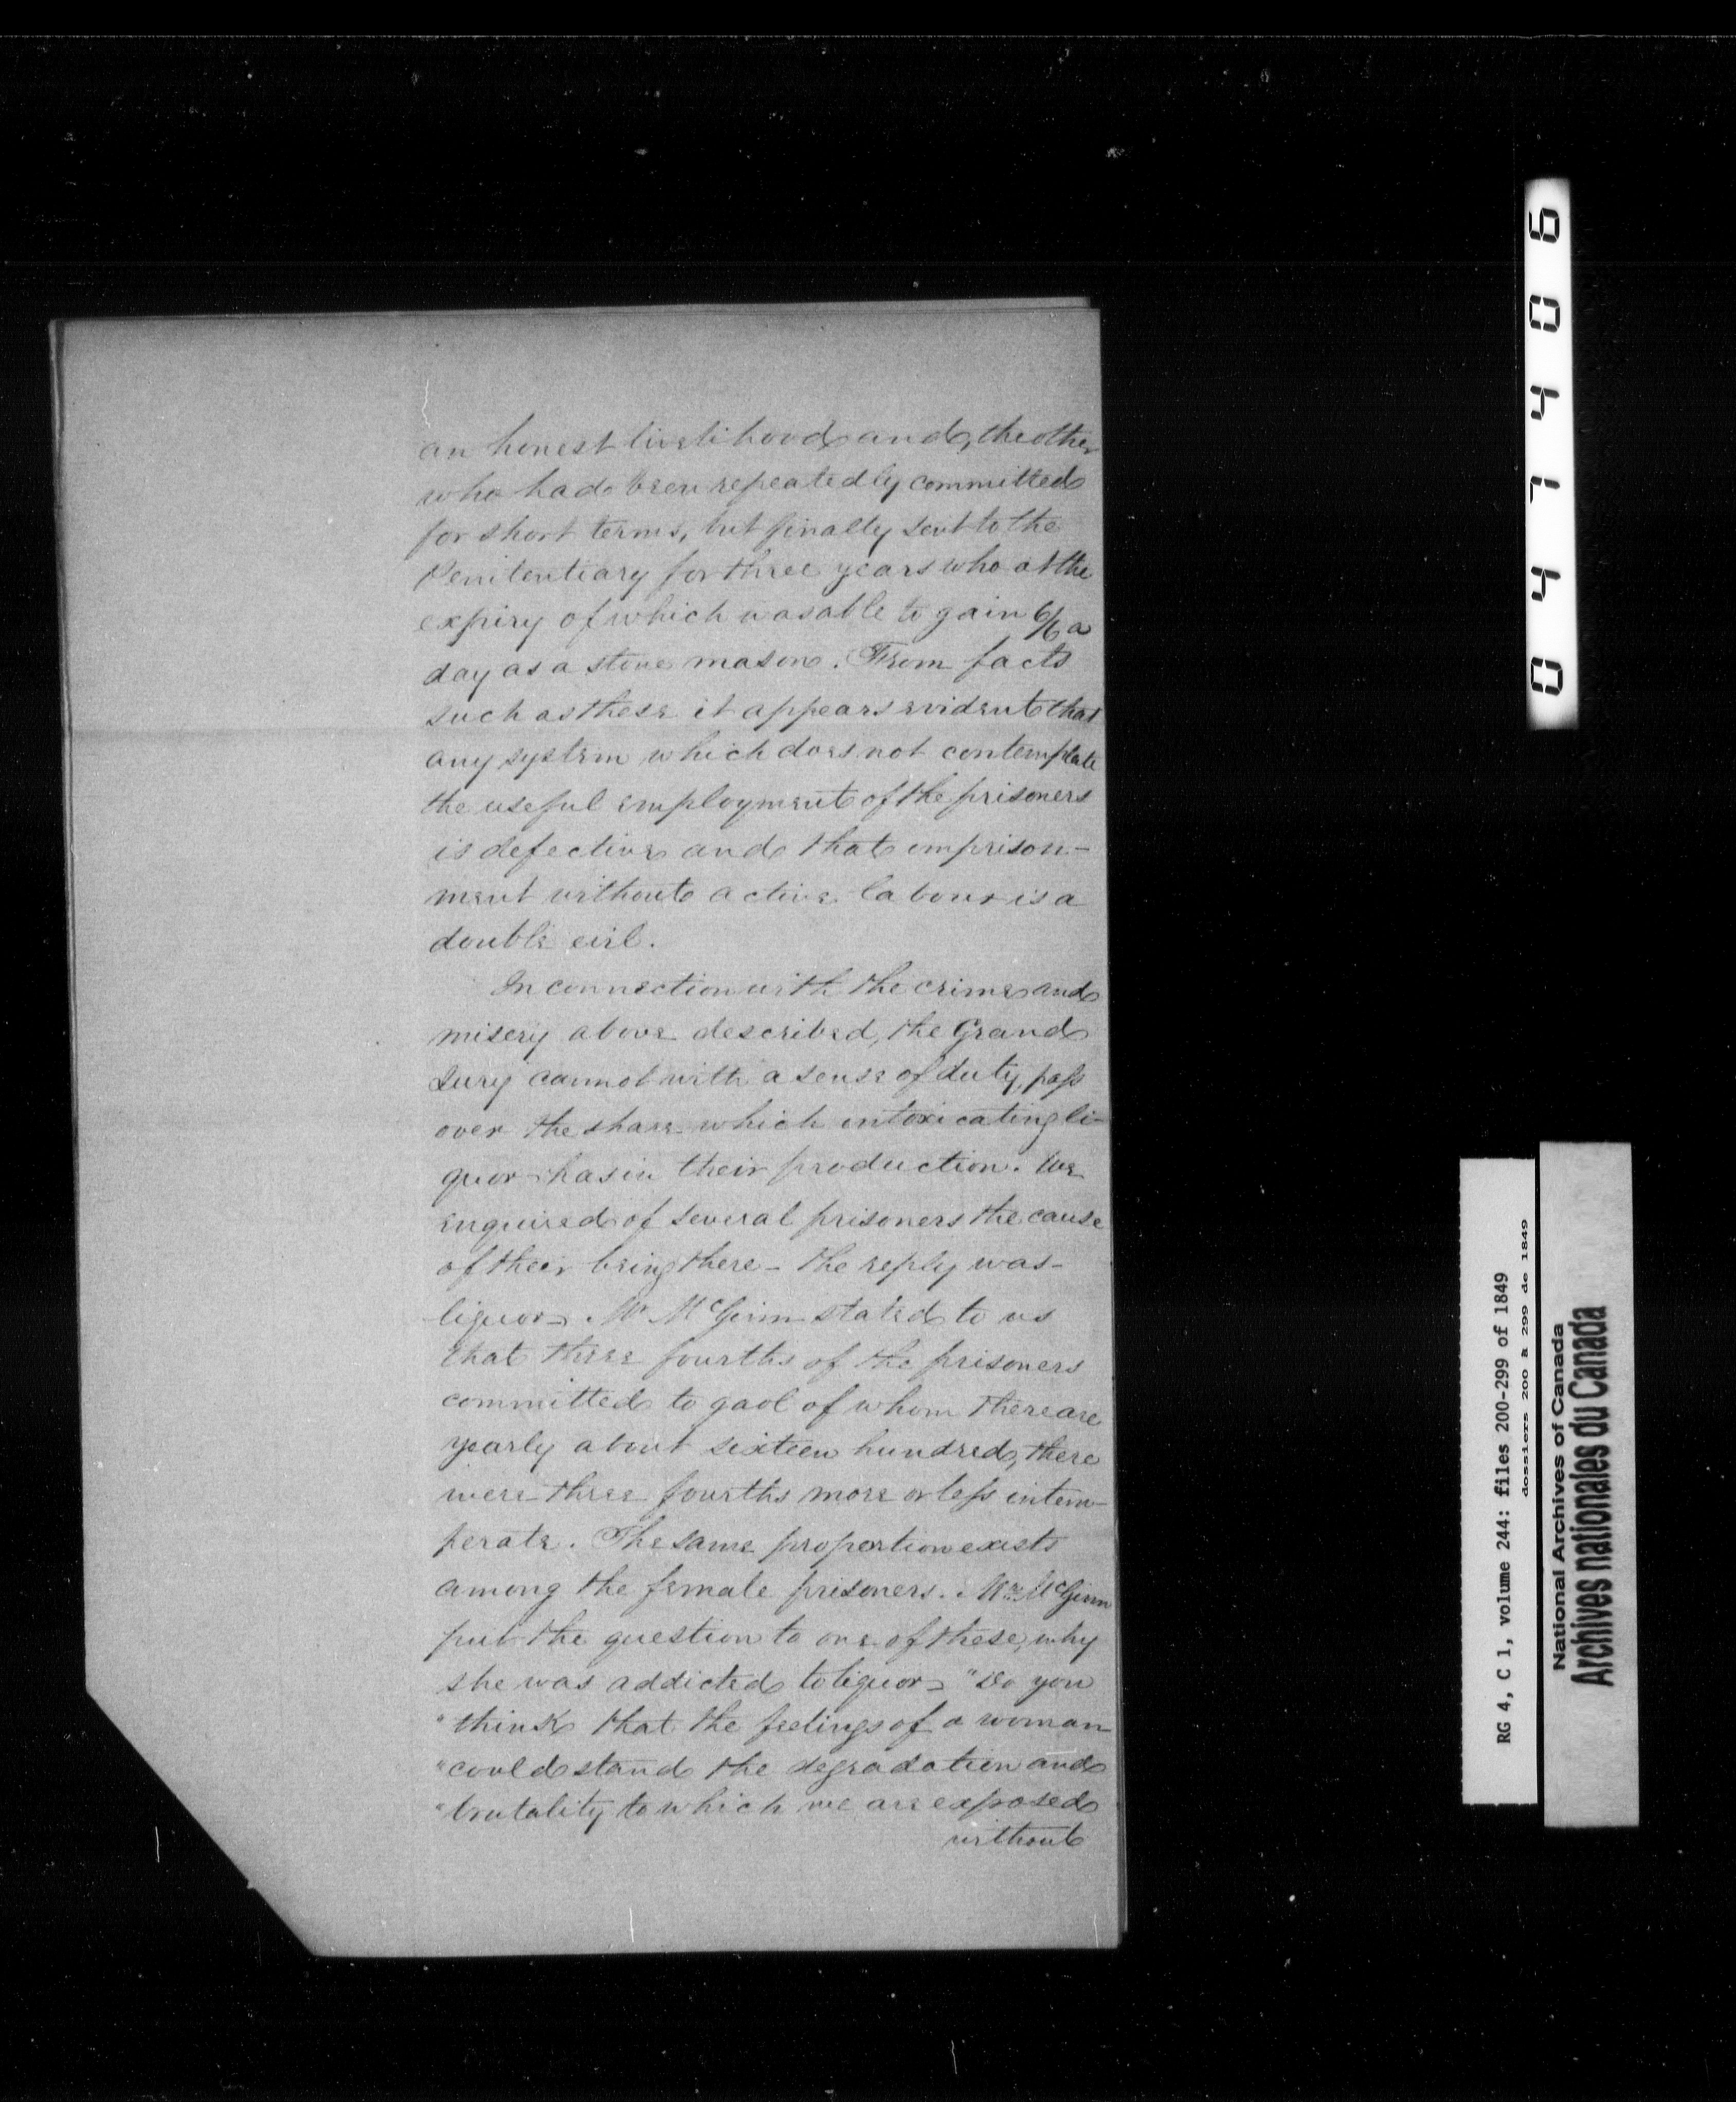 an honest livelihood and, the other
who had been repeatedly committed
for short terms, but finally sent to the
Penitentiary for three years who at the
expiry of which was able to gain 6/6 a
day as a stone mason. From facts
such as these it appears evident that
any system which does not contemplate
the useful employment of the prisoners
is defective and that imprison-
ment without active labour is a
double evil.
In connection with the crime and
misery above described, the Grand
Jury cannot with a sense of duty, pass
over the share which intoxicating li-
quor has in their production. We
inquired of several prisoners the cause
of their being there - the reply was -
liquor - Mr McGinn stated to us
that three fourths of the prisoners
committed to gaol of whom there are
yearly about sixteen hundred, there
were three fourths more or less intem-
perate. The same proportion exists
among the female prisoners. Mr McGinn
put the question to one of these, why
she was addicted to liquor - "Do you
"think that the feelings of a woman
"could stand the degradation and
"brutality to which we are exposed
without
0447406
RG 4, C 1, volume 244: files 200-299 of 1849
dossiers 200 à 299 de 1849
National Archives of Canada
Archives nationales du Canada